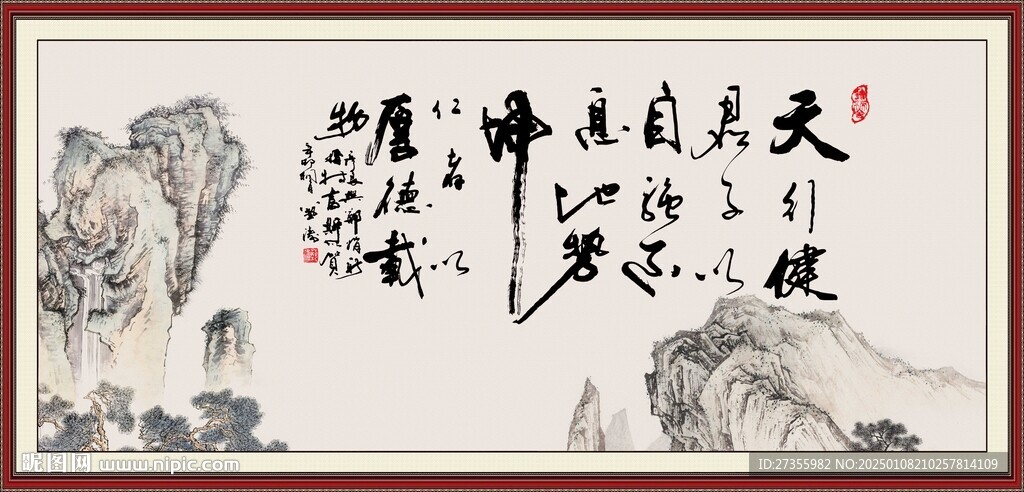 天行健
君子以
自強不
息地勢
坤
仁者以
厚德載
物
昵图网 www.nipic.com
ID:27355982 NO:20250108210257814109